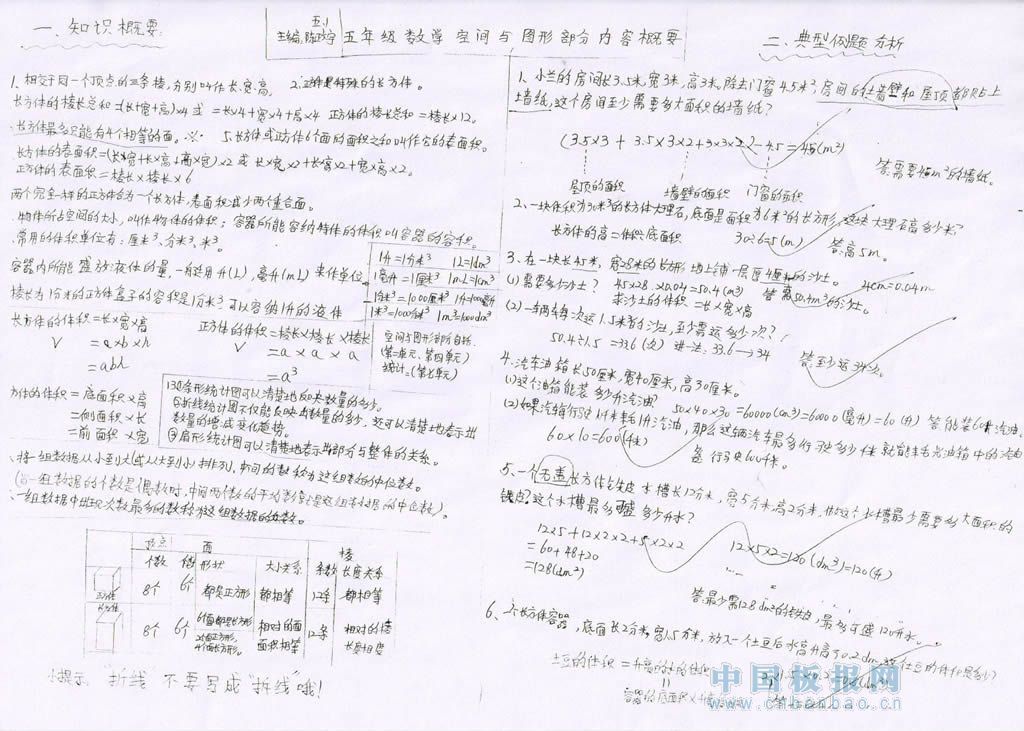 五.1
主编:陈
五年级 数学 空间与图形部分内容概要
一、知识概要:
1、相交于同一个顶点的三条棱,分别叫作长、宽、高。 2、正方体是特殊的长方体。
长方体的棱长总和=(长+宽+高)×4 或 =长×4+宽×4+高×4 正方体的棱长总和=棱长×12。
长方体最多只能有4个相等的面。※ 5、长方体或正方体6个面的面积之和叫作它的表面积。
长方体的表面积=(长×宽+长×高+高×宽)×2 或 长×宽×2+长×高×2+宽×高×2。
正方体的表面积=棱长×棱长×6
两个完全一样的正方体合为一个长方体,表面积减少两个重合面。
物体所占空间的大小,叫作物体的体积;容器所能容纳物体的体积叫容器的容积。
常用的体积单位有:厘米³、分米³、米³。
容器内所能盛放液体的量,一般运用升(L),毫升(mL)来作单位。
棱长为1分米的正方体盒子的容积是1分米³,可以容纳1升的液体
1升=1分米³ 1L=1dm³
1毫升=1厘米³ 1mL=1cm³
1分米³=1000厘米³ 1升=1000毫升
1米³=1000分米³ 1m³=1000dm³
长方体的体积=长×宽×高
V =a×b×h
=abh
正方体的体积=棱长×棱长×棱长
V =a×a×a
=a³
空间与图形部分包括:
(第二单元、第四单元)
统计:(第七单元)
方体的体积=底面积×高
=侧面积×长
=前面积×宽
13、①条形统计图可以清楚地反映数量的多少。
②折线统计图不仅能反映出数量的多少,还可以清楚地表示出
数量的增减变化趋势。
③扇形统计图可以清楚地表示出部分与整体的关系。
、将一组数据从小到大(或从大到小)排列,中间的数称为这组数的中位数。
(当一组数据的个数是偶数时,中间两个数的平均数就是这组数据的中位数)。
、一组数据中出现次数最多的数称为这组数据的众数。
顶点 面 棱
个数 个数 形状 大小关系 条数 长度关系
正方体 8个 6个 都是正方形 都相等 12条 都相等
长方体 8个 6个 6个面都是长方形 相对的面面积相等 12条 相对的棱长度相等
小提示:“折线”不要写成“拆线”哦!
二、典型例题分析
1、小兰的房间长3.5米,宽3米,高3米,除去门窗4.5米²,房间的墙壁和屋顶都贴上
墙纸,这个房间至少需要多大面积的墙纸?
(3.5×3+3.5×3×2+3×3×2)-4.5=45(m²)
屋顶的面积 墙壁的面积 门窗的面积
答:需要45m²的墙纸。
2、一块体积为30米³的长方体大理石,底面是面积为6米²的长方形,这块大理石高多少米?
长方体的高=体积÷底面积 30÷6=5(m) 答:高5m。
3、在一块长45米,宽28米的长方形地上铺一层厚4厘米的沙土。
(1)需要多少沙土? 45×28×0.04=50.4(m³) 答:需50.4m³的沙土。 4cm=0.04m
求沙土的体积=长×宽×高
(2)一辆车每次运1.5米³的沙土,至少需运多少次?
50.4÷1.5=33.6(次) 进一法:33.6→34
答:至少运34次。
4、汽车油箱长50厘米,宽40厘米,高30厘米。
(1)这个油箱能装多少升汽油? 50×40×30=60000(cm³)=60000(毫升)=60(升) 答:能装60升汽油。
(2)如果汽车每行驶10千米耗1升汽油,那么这辆汽车最多行驶多少千米就能耗光油箱中的汽油
60×10=600(千米) 答:行驶600千米。
5、一个无盖长方体铁皮水槽长12分米,宽5分米,高2分米,做这个水槽最少需要多大面积的
铁皮?这个水槽最多可盛多少升水?
12×5+12×2×2+5×2×2
=60+48+20
=128(dm²)
12×5×2=120(dm³)=120(升)
答:最少需128dm²的铁皮,最多可盛120升水。
6、一个长方体容器,底面长2分米,宽1.5分米,放入一个土豆后水高升高了0.2dm,这个土豆的体积是多少?
土豆的体积=升高的水的体积
容器的底面积×
中国板报网
www.cnbanbao.cn